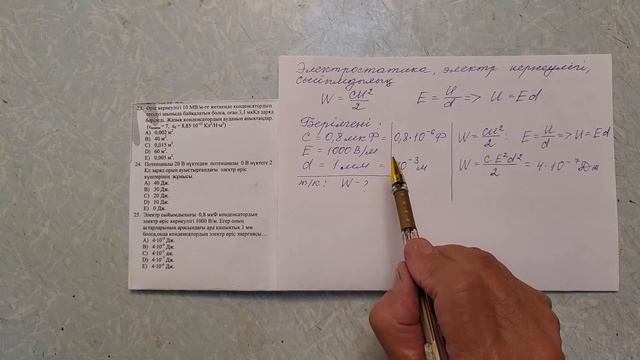 23. Өріс кернеулігі 10 МВ/м-ге жеткенде конденсатордың
тесілуі мына байқалатын болса, оған 3,1 мкКл заряд
берілді. Жазық конденсатордың ауданын анықтаңдар.
A) 0,002 м².
B) 40 м².
C) 0,015 м².
D) 60 м².
E) 0,005 м².
24. Потенциалы 20 В нүктеден потенциалы 0 В нүктеге 2
Кл заряд орын ауыстырғандағы электр өріс
күштерінің жұмысы.
A) 40 Дж.
B) 30 Дж.
C) 20 Дж.
D) 10 Дж.
E) 0 Дж.
25. Электр сыйымдылығы 0,8 мкФ конденсатордың
электр өріс кернеулігі 1000 В/м. Егер оның
астарларының арасындағы ара қашықтық 1 мм
болса, онда конденсатордың электр өріс энергиясы...
Электростатика, электр кернеулігі,
сыйымдылық
W = CU²/2 E = U/d => U = Ed
Берілгені:
C = 0,8 мкФ = 0,8·10⁻⁶ Ф W = CU²/2 ; E = U/d => U = Ed
E = 1000 В/м
d = 1 мм = 10⁻³ м W = CE²d²/2 = 4·10⁻⁷ Дж
т/к: W - ?